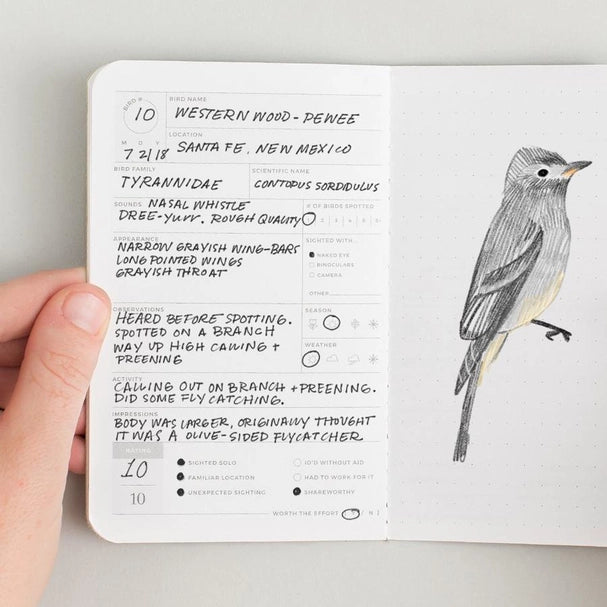 BIRD #
10
BIRD NAME
WESTERN WOOD-PEWEE
LOCATION
SANTA FE, NEW MEXICO
M D Y
7 21 18
BIRD FAMILY
TYRANNIDAE
SCIENTIFIC NAME
CONTOPUS SORDIDULUS
SOUNDS NASAL WHISTLE
DREE-yurr. ROUGH QUALITY
# OF BIRDS SPOTTED
2 3 4 5+
APPEARANCE
NARROW GRAYISH WING-BARS
LONG POINTED WINGS
GRAYISH THROAT
SIGHTED WITH...
NAKED EYE
BINOCULARS
CAMERA
OTHER
OBSERVATIONS
HEARD BEFORE SPOTTING.
SPOTTED ON A BRANCH
WAY UP HIGH CALLING +
PREENING
SEASON
WEATHER
ACTIVITY
CALLING OUT ON BRANCH + PREENING.
DID SOME FLY CATCHING.
IMPRESSIONS
BODY WAS LARGER, ORIGINALLY THOUGHT
IT WAS A OLIVE-SIDED FLYCATCHER
RATING
10
10
SIGHTED SOLO
FAMILIAR LOCATION
UNEXPECTED SIGHTING
ID'D WITHOUT AID
HAD TO WORK FOR IT
SHAREWORTHY
WORTH THE EFFORT [ Y / N ]